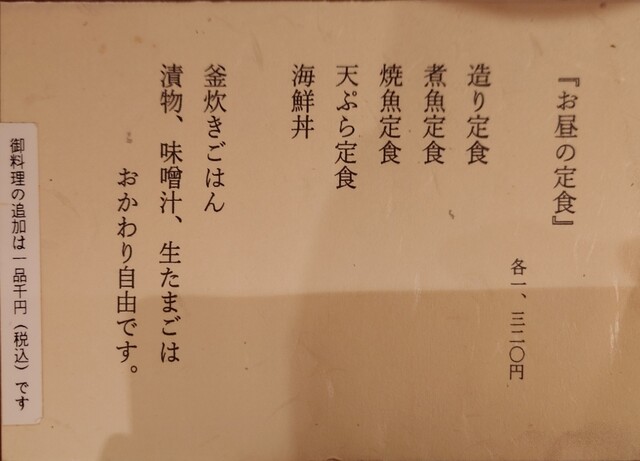 『お昼の定食』
各一、三二〇円
造り定食
煮魚定食
焼魚定食
天ぷら定食
海鮮丼
釜炊きごはん
漬物、味噌汁、生たまごは
おかわり自由です。
御料理の追加は一品千円（税込）です